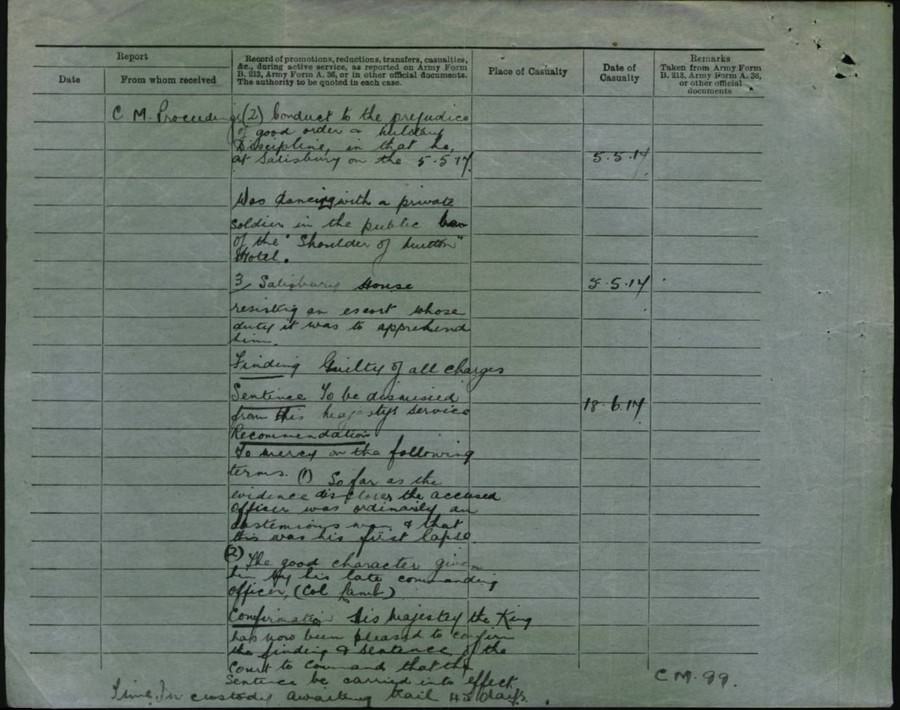 Report
Date
From whom received
Record of promotions, reductions, transfers, casualties,
&c., during active service, as reported on Army Form
B. 213, Army Form A. 36, or in other official documents.
The authority to be quoted in each case.
Place of Casualty
Date of
Casualty
Remarks
Taken from Army Form
B. 213, Army Form A. 36,
or other official
documents
C M. Proceedings (2) Conduct to the prejudice
of good order & military
Discipline, in that he,
at Salisbury on the 5.5.17. 5.5.17
Was dancing with a private
soldier in the public bar
of the "Shoulder of Mutton"
Hotel.
3/ Salisbury House 5.5.17
resisting an escort whose
duty it was to apprehend
him.
Finding Guilty of all charges
Sentence To be dismissed
from His Majesty's Service 18.6.17
Recommendation
To mercy on the following
terms. (1) So far as the
evidence discloses the accused
officer was ordinarily an
abstemious man & that
this was his first lapse.
(2) The good character given
him by his late commanding
officer, (Col Lamb)
Confirmation His Majesty the King
has now been pleased to confirm
the finding & sentence of the
Court to command that the
sentence be carried into effect.
Time in custody awaiting trail 43 days. C M. 99.